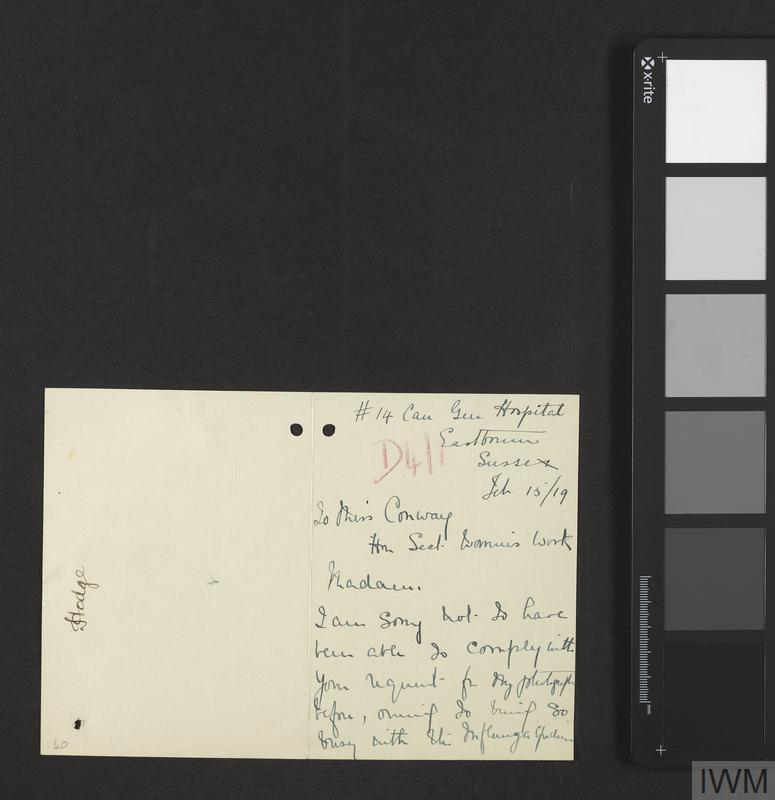 # 14 Can Gen Hospital
Eastbourne
D4/1
Sussex
Feb 15/19
To Miss Conway
Hon Sect. Women's Work
Madam.
I am sorry not to have
been able to comply with
your request for my photograph
before, owing to being so
busy with the Influenza Epidemic
Hodge
60
x-rite
mm
IWM